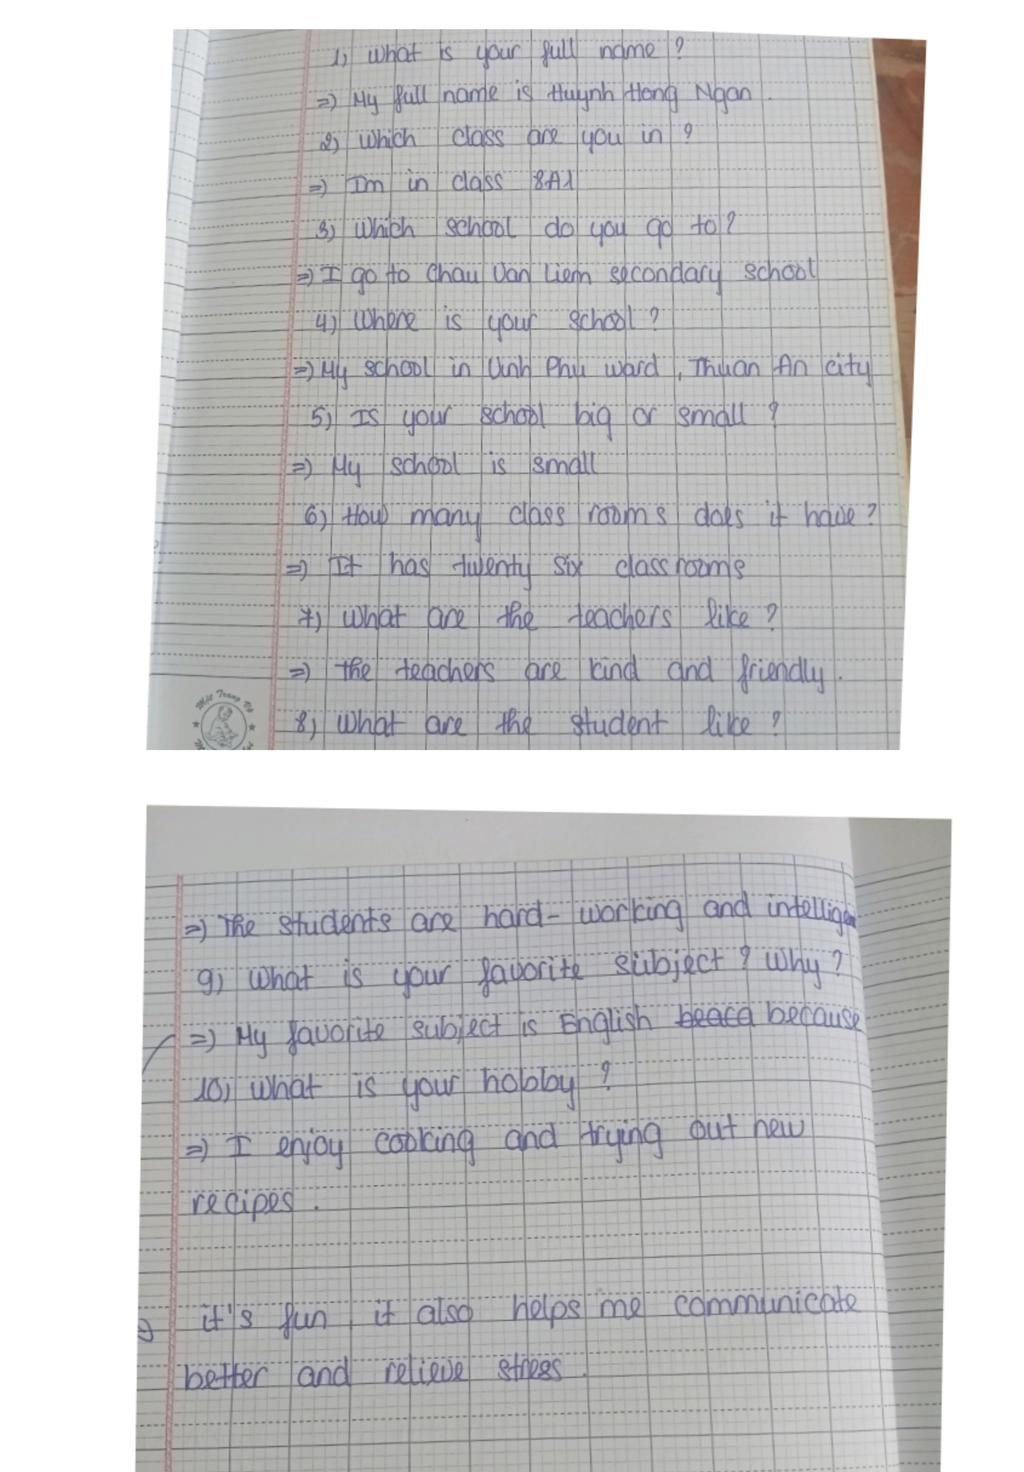 1) What is your full name ?
=) My full name is Huynh Hong Ngan .
2) Which class are you in ?
=) Im in class 8A1
3) Which school do you go to ?
=) I go to Chau Van Liem secondary school
4) Where is your school ?
=) My school in Vinh Phu ward , Thuan An city
5) Is your school big or small ?
=) My school is small
6) How many class rooms does it have ?
=) It has twenty six class rooms
7) What are the teachers like ?
=) the teachers are kind and friendly .
8) What are the student like ?
=) The students are hard - working and
9) What is your favorite subject ? Why ?
=) My favorite subject is English because
10) What is your hobby ?
=) I enjoy cooking and trying out new
recipes .
it's fun , it also helps me communicate
better and relieve stress .